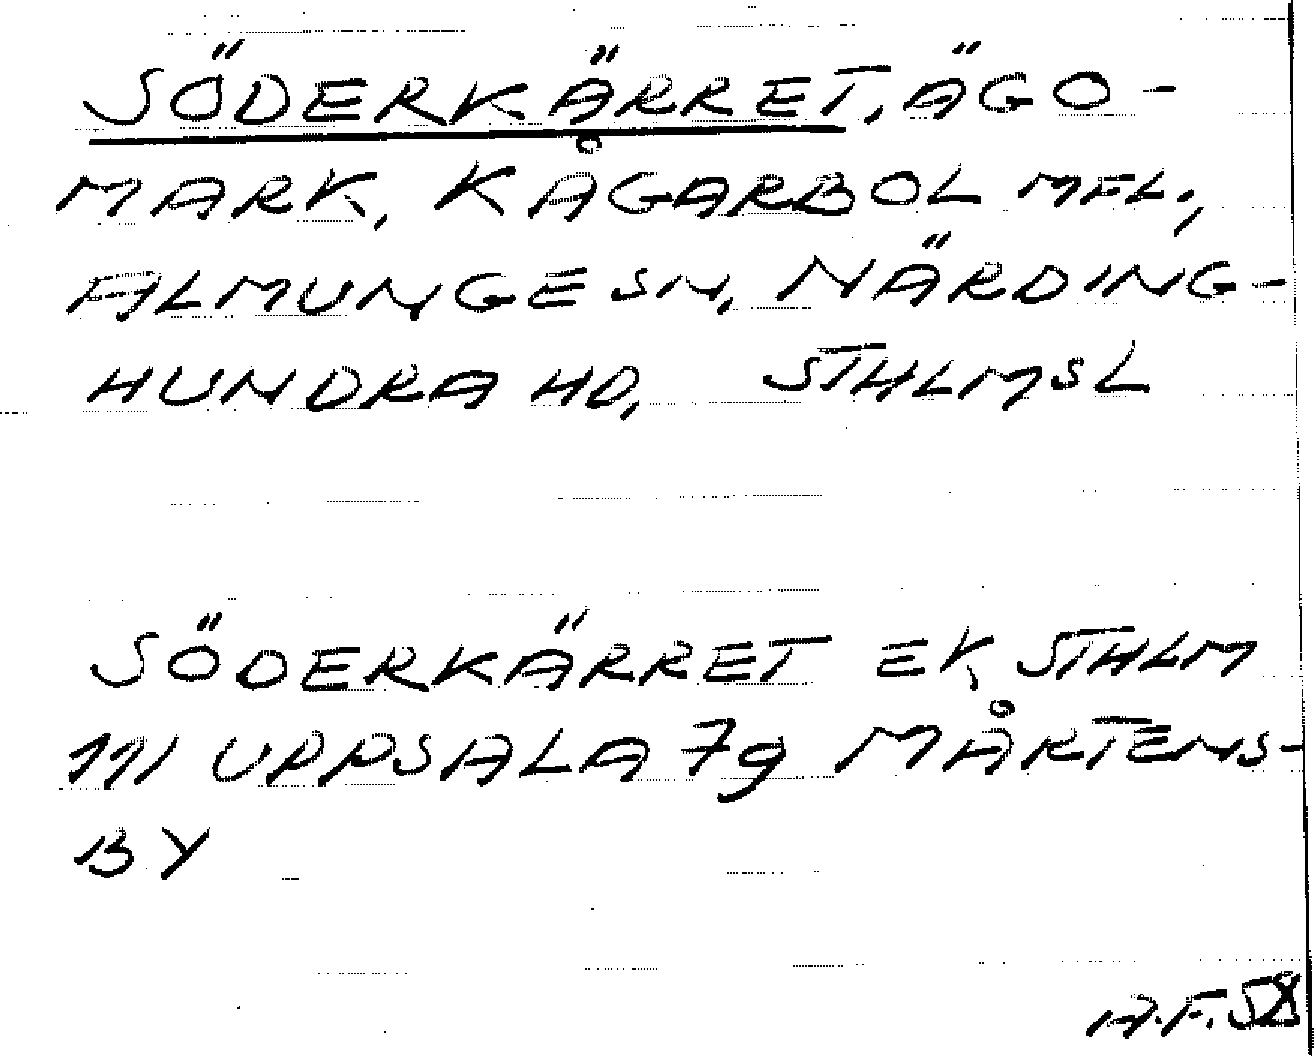 SÖDERKÄRRET, ÄGO-
MARK, KÅGARBOL MFL.,
ALMUNGE SN, NÄRDING-
HUNDRA HD, STHLMSL
SÖDERKÄRRET EK, STHLM
111 UPPSALA 7g MÅRTENS-
BY
A.F. 58